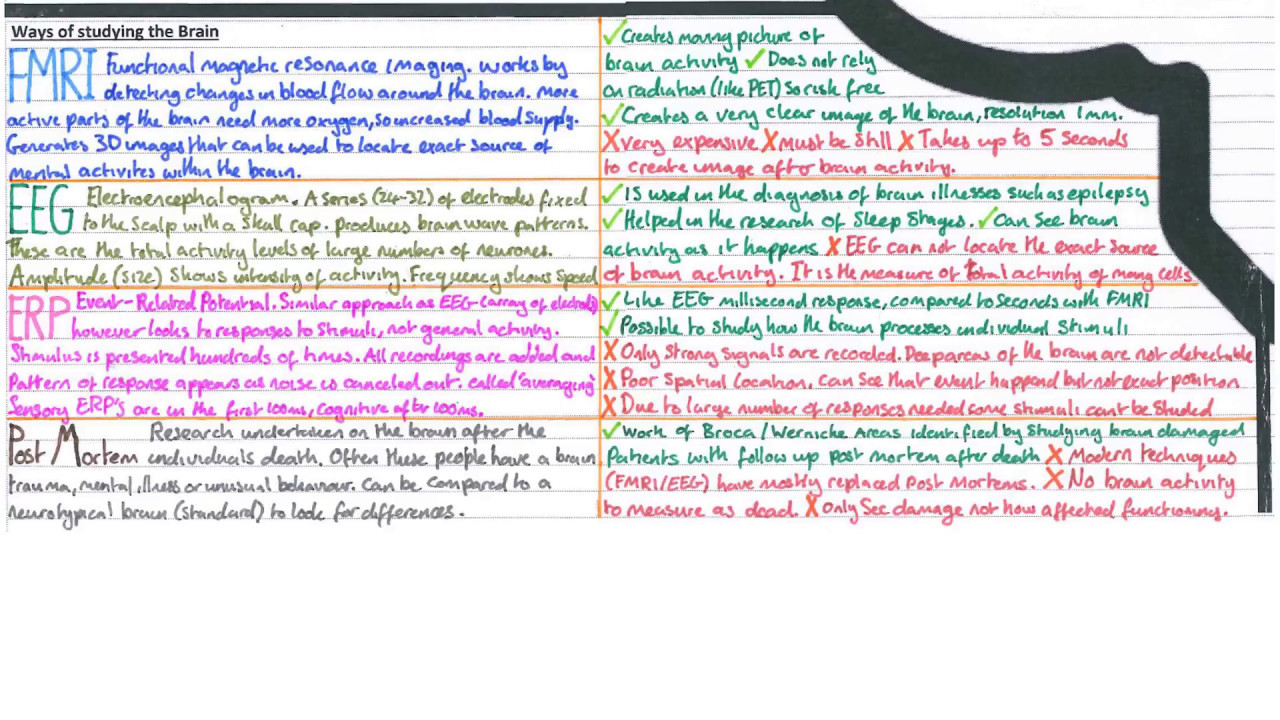 Ways of studying the Brain
FMRI Functional magnetic resonance imaging. works by
detecting changes in blood flow around the brain. More
active parts of the brain need more oxygen, so increased blood supply.
Generates 3D images that can be used to locate exact source of
mental activites within the brain.
✓Creates moving picture of
brain activity ✓Does not rely
on radiation (like PET) so risk free
✓Creates a very clear image of the brain, resolution 1mm.
X very expensive X must be still X Takes up to 5 seconds
to create image after brain activity.
EEG Electroencephalogram. A series (24-32) of electrodes fixed
to the Scalp with a skull cap. produces brain wave patterns.
These are the total activity levels of large numbers of neurones.
Amplitude (size) shows intensity of activity. Frequency shows speed
✓IS used in the diagnosis of brain illnesses such as epilepsy
✓Helped in the research of Sleep Stages. ✓Can see brain
activity as it happens X EEG can not locate the exact source
of brain activity. It is the measure of total activity of many cells
ERP Event-Related Potential. Similar approach as EEG (array of electrods)
however looks to responses to stimuli, not general activity.
Stimulus is presented hundreds of times. All recordings are added and
pattern of response appears as noise is canceled out. called 'averaging'
Sensory ERP's are in the first 100ms, cognitive after 100ms.
✓Like EEG millisecond response, compared to seconds with FMRI
✓Possible to study how the brain processes individual stimuli
X Only strong signals are recorded. Deep areas of the brain are not detectable
X Poor spatial location, can see that event happend but not exact position
X Due to large number of responses needed some stimuli cant be studied
Post Mortem Research undertaken on the brain after the
individuals death. Often these people have a brain
trauma, mental illness or unusual behaviour. Can be compared to a
neurotypical brain (standard) to look for differences.
✓Work of Broca/Wernicke Areas identified by studying brain damaged
Patients with follow up post mortem after death X Modern techniques
(FMRI/EEG) have mostly replaced Post Mortems. X No brain activity
to measure as dead. X only see damage not how affected functioning.